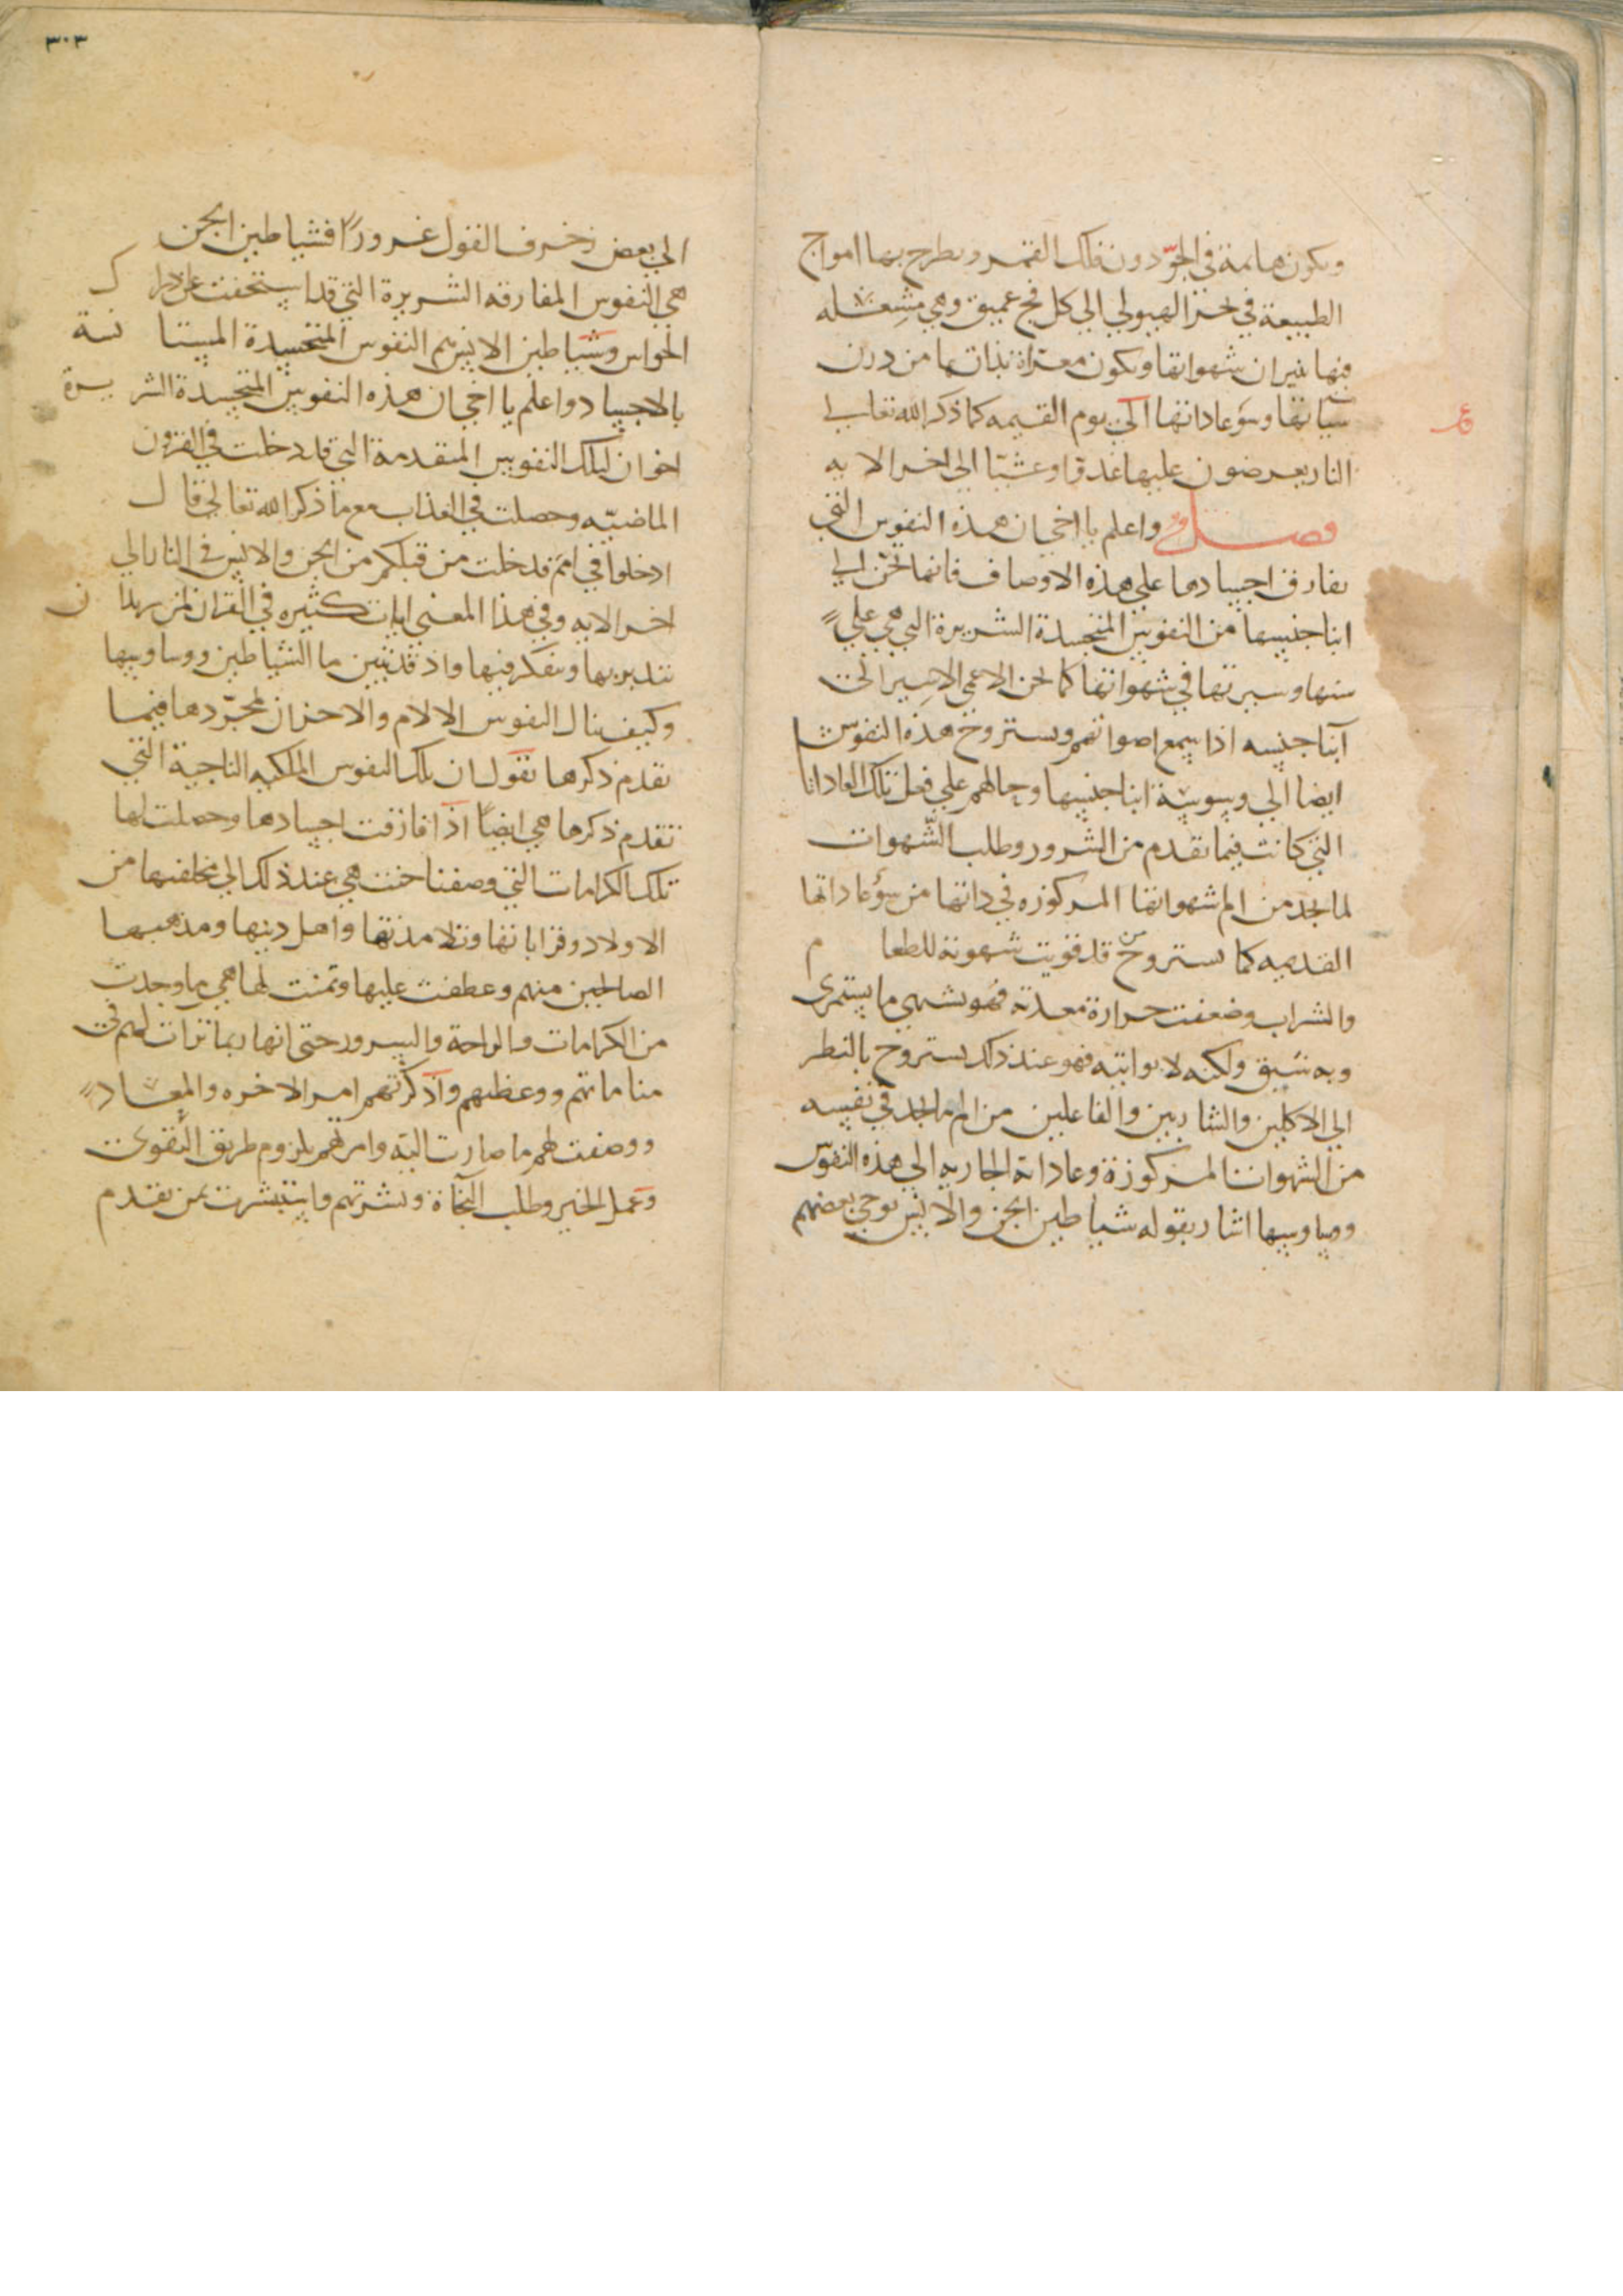 وتكون هايمة في الجوّ دون فلك القمر وتطرح بها امواج
الطبيعة في بحر الهيولي الي كل فج عميق وهي مشتعله
فيها نيران شهواتها وتكون معذبة بذاتها من درن
سيّاتها وسوء عاداتها الي يوم القيمه كما ذكر الله تعالي
النار يعرضون عليها غدوّا وعشيّا الي اخر الايه
فصل واعلم يا اخي ان هذه النفوس التي
تفارق اجسادها علي هذه الاوصاف فانها تحن الي
ابنا جنسها من النفوس المتجسدة الشريرة التي هي علي
سنتها وسيرتها في شهواتها كما يحن الاعمي الاسير الي
ابنا جنسه اذا سمع اصواتهم ويستروح هذه النفوس
ايضا الي وسوسة ابنا جنسها وحالهم علي فعل تلك العادات
التي كانت فيما تقدم من الشرور وطلب الشّهوات
لما تجد من الم شهواتها المركوزه في ذاتها من سوء عاداتها
القديمه كما يستروح من قد قويت شهوته للطعام
والشراب وضعفت حرارة معدته فهو يشهي ما يستمرى
وبه شبق ولكنه لا يواتيه فهو عند ذلك يستروح بالنظر
الي الاكلين والشاربين والفاعلين من الم ما يجد في نفسه
من الشهوات المركوزة وعاداته الجاريه الي هذه النفوس
ووساوسها اشار بقوله شياطين الجن والانس يوحي بعضهم
٣٠٣
الي بعض زخرف القول غرورًا فشياطين الجن
هي النفوس المفارقه الشريرة التي قد استخفت عن ادراك
الحواس وشياطين الانس هم النفوس المتجسدة المستانسة
بالاجساد واعلم يا اخي ان هذه النفوس المتجسدة الشريرة
اخوان لتلك النفوس المتقدمة التي قد دخلت في القرون
الماضيّه وحصلت في العذاب مع ما ذكر الله تعالي قال
ادخلوا في امم قد خلت من قبلكم من الجن والانس في النار الي
اخر الايه وفي هذا المعني ايات كثيره في القران لمن يريد ان
يتدبر بها ويتفكر فيها واذ قد تبين ما الشياطين ووساوسها
وكيف ينال النفوس الالام والاحزان لمجرّدها فيما
تقدم ذكرها نقول ان تلك النفوس الملكيه الناجية التي
تقدم ذكرها هي ايضًا اذا فارقت اجسادها وحصلت لها
تلك الكرامات التي وصفنا حنت هي عند ذلك الي مخلفيها من
الاولاد وقراباتها وتلامذتها واهل دينها ومذهبها
الصالحين منهم وعطفت عليها وتمنت لها هي ما وجدت
من الكرامات والراحة والسرور حتى انها ربما ترات لهم في
مناماتهم ووعظتهم واذكرتهم امر الاخره والمعاد
ووصفت لهم ما صارت اليه وامرتهم بلزوم طريق التّقوى
وعمل الخير وطلب النجاة وبشرتهم واستبشرت بمن تقدم